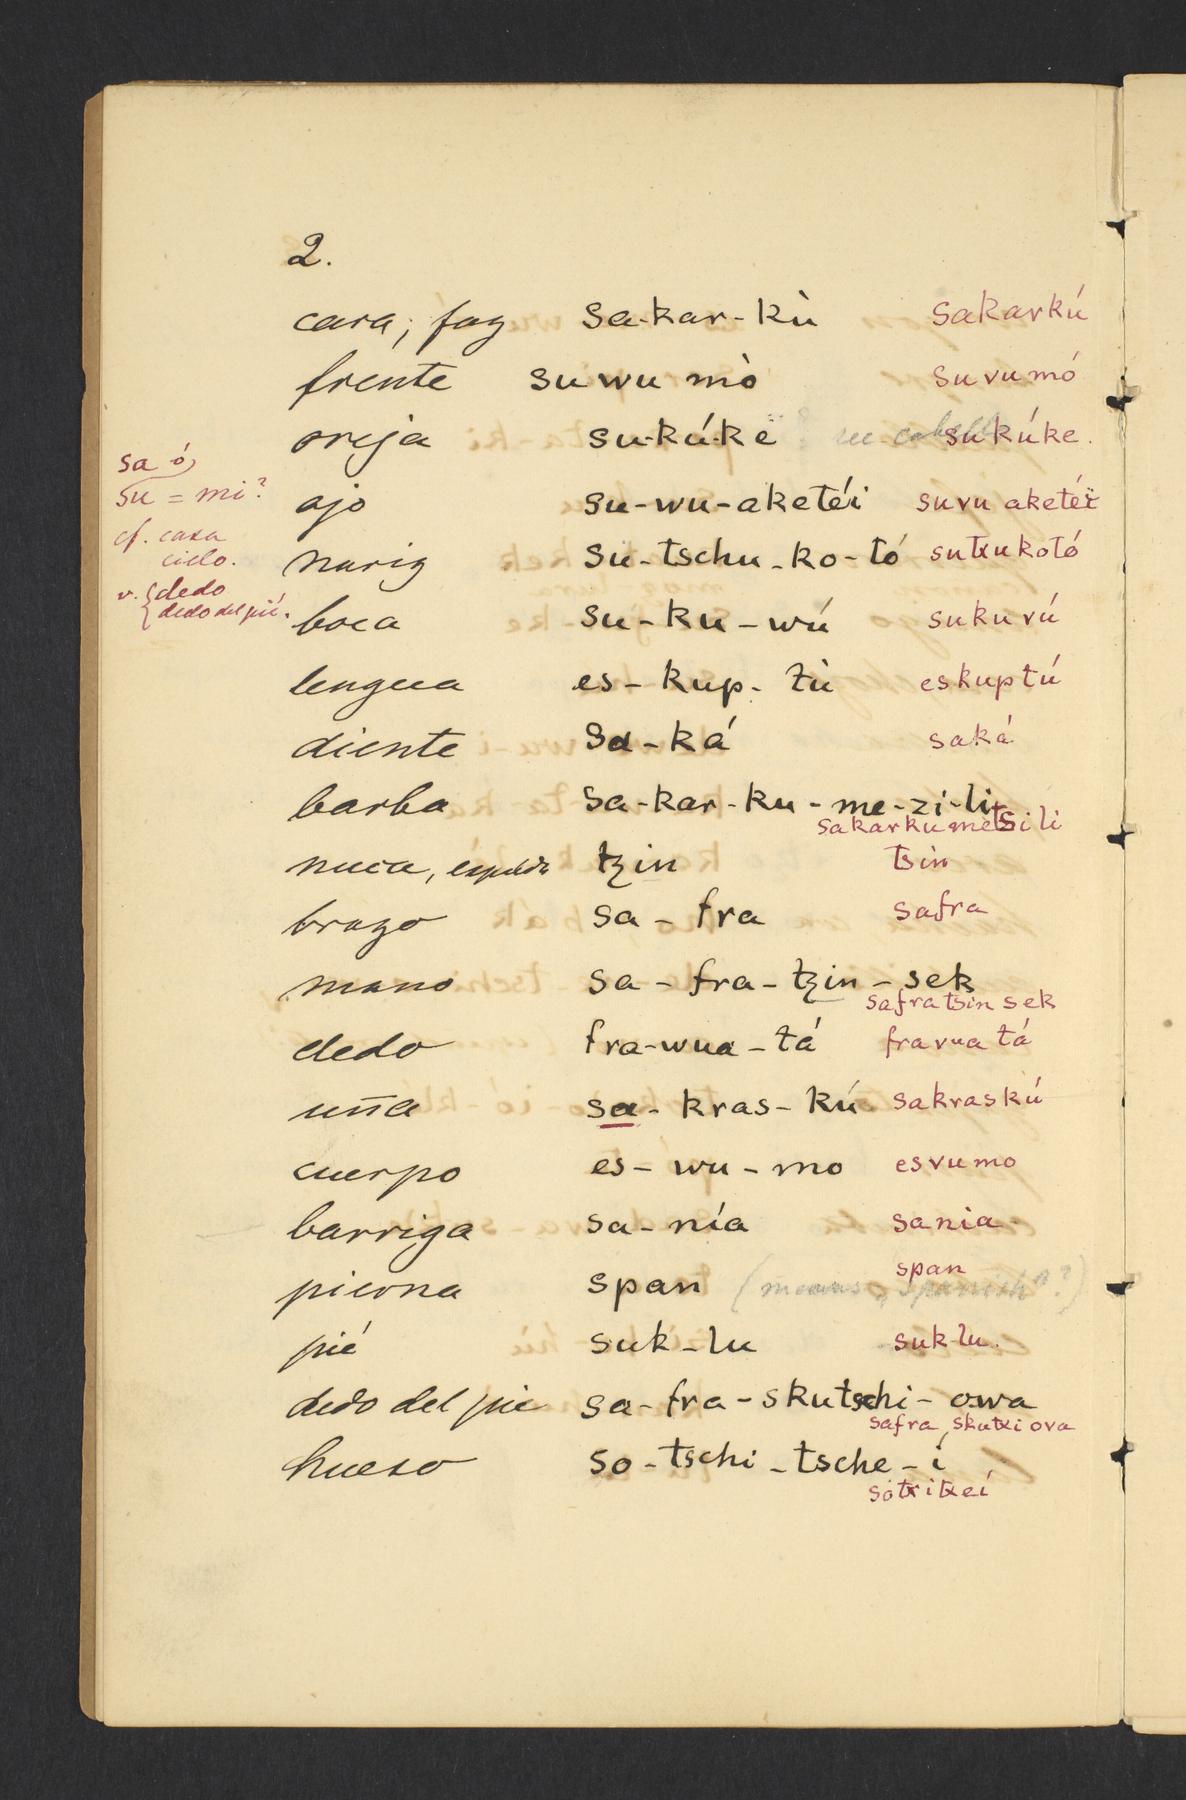 2.
cara; faz sa-kar-kù sakarkú
frente suwu mò suvumó
oreja su-kú-kë ? see cabello sukúke.
sa ó
su = mi?
ojo su-wu-aketéi suvu aketéï
cf. casa
cielo.
nariz su-tschu-ko-tó sutxukotó
v. { dedo
dedo del pié.
boca su-ku-wú sukuvú
lengua es-kup-tù eskuptú
diente sa-ká saká
barba sa-kar-ku-me-zi-li
sakarkumetsili
nuca, espalda tzin tsin
brazo sa-fra safra
mano sa-fra-tzin-sek
safratsin sek
dedo fra-wua-tá fravua tá
uña sa-kras-kú sakraskú
cuerpo es-wu-mo esvumo
barriga sa-nía sania
span
pierna span (means "Spanish"?)
pié suk-lu suk-lu.
dedo del pie sa-fra-skutschi-owa
safra skutxi ova
hueso so-tschi-tsche-i
sotxitxeí